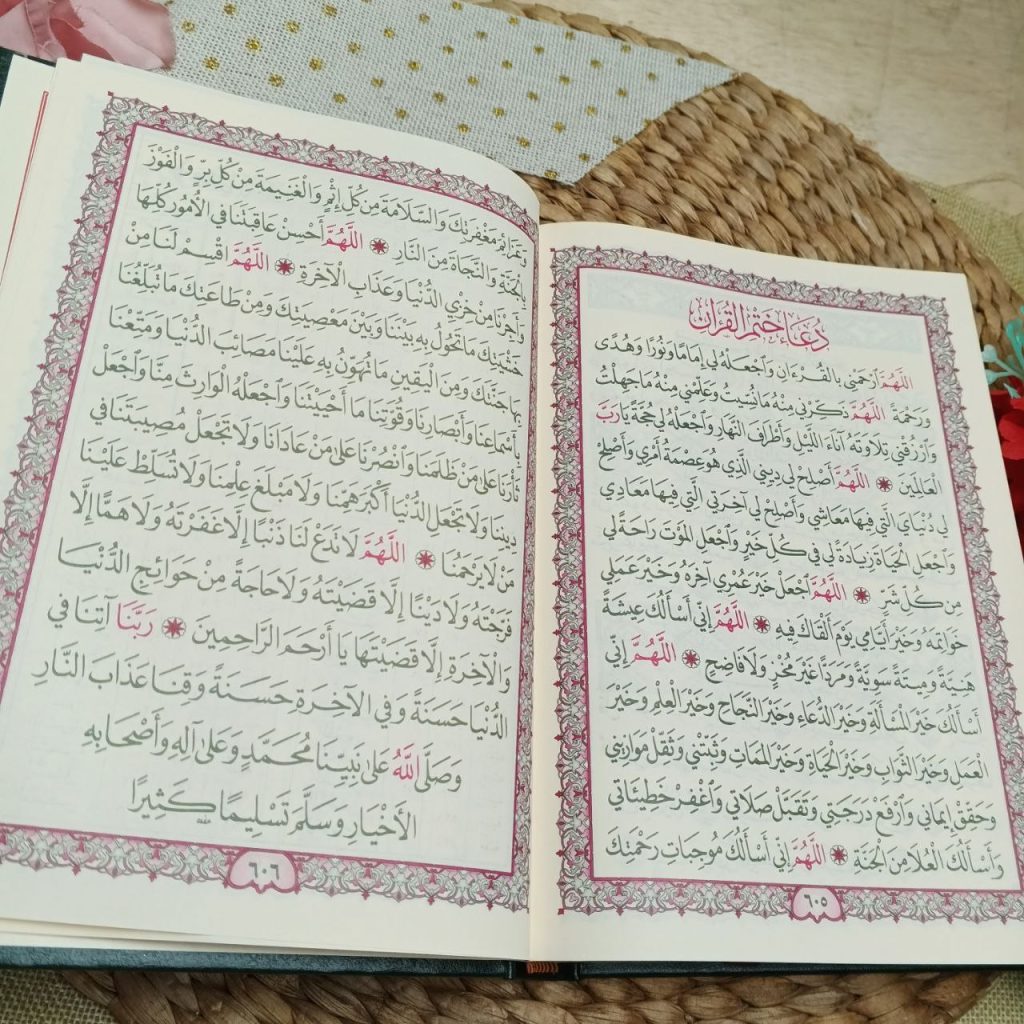 دُعَاءُ خَتْمِ الْقُرْآنِ
اللَّهُمَّ ٱرْحَمْنِي بِالْقُرْءَانِ وَٱجْعَلْهُ لِي إِمَامًا وَنُورًا وَهُدًى
وَرَحْمَةً اللَّهُمَّ ذَكِّرْنِي مِنْهُ مَانُسِّيتُ وَعَلِّمْنِي مِنْهُ مَاجَهِلْتُ
وَٱرْزُقْنِي تِلَاوَتَهُ آنَاءَ اللَّيْلِ وَأَطْرَافَ النَّهَارِ وَٱجْعَلْهُ لِي حُجَّةً يَارَبَّ
الْعَالَمِينَ ۞ اللَّهُمَّ أَصْلِحْ لِي دِينِي الَّذِي هُوَ عِصْمَةُ أَمْرِي وَأَصْلِحْ
لِي دُنْيَايَ الَّتِي فِيهَا مَعَاشِي وَأَصْلِحْ لِي آخِرَتِي الَّتِي فِيهَا مَعَادِي
وَٱجْعَلِ الْحَيَاةَ زِيَادَةً لِي فِي كُلِّ خَيْرٍ وَٱجْعَلِ الْمَوْتَ رَاحَةً لِي
مِن كُلِّ شَرٍّ ۞ اللَّهُمَّ ٱجْعَلْ خَيْرَ عُمْرِي آخِرَهُ وَخَيْرَ عَمَلِي
خَوَاتِمَهُ وَخَيْرَ أَيَّامِي يَوْمَ أَلْقَاكَ فِيهِ ۞ اللَّهُمَّ إِنِّي أَسْأَلُكَ عِيشَةً
هَنِيَّةً وَمِيتَةً سَوِيَّةً وَمَرَدًّا غَيْرَ مُخْزٍ وَلَا فَاضِحٍ ۞ اللَّهُمَّ إِنِّي
أَسْأَلُكَ خَيْرَ الْمَسْأَلَةِ وَخَيْرَ الدُّعَاءِ وَخَيْرَ النَّجَاحِ وَخَيْرَ الْعِلْمِ وَخَيْرَ
الْعَمَلِ وَخَيْرَ الثَّوَابِ وَخَيْرَ الْحَيَاةِ وَخَيْرَ الْمَمَاتِ وَثَبِّتْنِي وَثَقِّلْ مَوَازِينِي
وَحَقِّقْ إِيمَانِي وَٱرْفَعْ دَرَجَتِي وَتَقَبَّلْ صَلَاتِي وَٱغْفِرْ خَطِيئَاتِي
وَأَسْأَلُكَ الْعُلَا مِنَ الْجَنَّةِ ۞ اللَّهُمَّ إِنِّي أَسْأَلُكَ مُوجِبَاتِ رَحْمَتِكَ
٦٠٥
وَعَزَائِمَ مَغْفِرَتِكَ وَالسَّلَامَةَ مِن كُلِّ إِثْمٍ وَالْغَنِيمَةَ مِنْ كُلِّ بِرٍّ وَالْفَوْزَ
بِالْجَنَّةِ وَالنَّجَاةَ مِنَ النَّارِ ۞ اللَّهُمَّ أَحْسِنْ عَاقِبَتَنَا فِي الْأُمُورِ كُلِّهَا
وَأَجِرْنَا مِنْ خِزْيِ الدُّنْيَا وَعَذَابِ الْآخِرَةِ ۞ اللَّهُمَّ اقْسِمْ لَنَا مِنْ
خَشْيَتِكَ مَا تَحُولُ بِهِ بَيْنَنَا وَبَيْنَ مَعْصِيَتِكَ وَمِنْ طَاعَتِكَ مَا تُبَلِّغُنَا
بِهَا جَنَّتَكَ وَمِنَ الْيَقِينِ مَا تُهَوِّنُ بِهِ عَلَيْنَا مَصَائِبَ الدُّنْيَا وَمَتِّعْنَا
بِأَسْمَاعِنَا وَأَبْصَارِنَا وَقُوَّتِنَا مَا أَحْيَيْتَنَا وَٱجْعَلْهُ الْوَارِثَ مِنَّا وَٱجْعَلْ
ثَأْرَنَا عَلَى مَنْ ظَلَمَنَا وَٱنْصُرْنَا عَلَى مَنْ عَادَانَا وَلَا تَجْعَلْ مُصِيبَتَنَا فِي
دِينِنَا وَلَا تَجْعَلِ الدُّنْيَا أَكْبَرَ هَمِّنَا وَلَا مَبْلَغَ عِلْمِنَا وَلَا تُسَلِّطْ عَلَيْنَا
مَنْ لَا يَرْحَمُنَا ۞ اللَّهُمَّ لَا تَدَعْ لَنَا ذَنْبًا إِلَّا غَفَرْتَهُ وَلَا هَمًّا إِلَّا
فَرَّجْتَهُ وَلَا دَيْنًا إِلَّا قَضَيْتَهُ وَلَا حَاجَةً مِنْ حَوَائِجِ الدُّنْيَا
وَالْآخِرَةِ إِلَّا قَضَيْتَهَا يَا أَرْحَمَ الرَّاحِمِينَ ۞ رَبَّنَا آتِنَا فِي
الدُّنْيَا حَسَنَةً وَفِي الْآخِرَةِ حَسَنَةً وَقِنَا عَذَابَ النَّارِ
وَصَلَّى اللَّهُ عَلَى نَبِيِّنَا مُحَمَّدٍ وَعَلَى آلِهِ وَأَصْحَابِهِ
الْأَخْيَارِ وَسَلَّمَ تَسْلِيمًا كَثِيرًا
٦٠٦